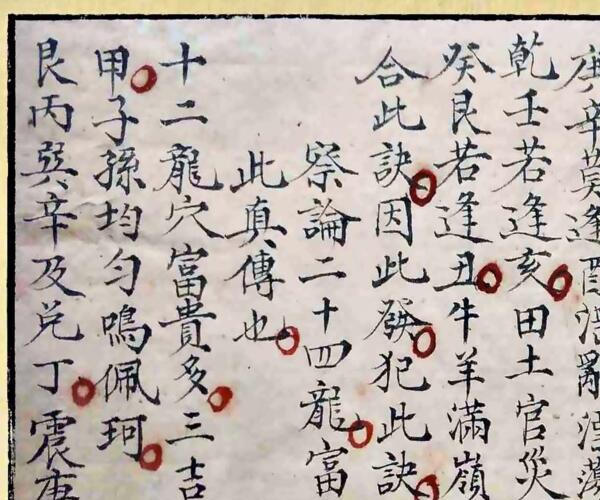 庚辛莫逢酉
乾壬若逢亥田土官災
癸艮若逢丑牛羊滿嶺
合此訣因此發犯此訣
察論二十四龍富
此真傳也
十二龍穴富貴多三吉
甲子孫均勻鳴佩珂
艮丙巽辛及兌丁震庚